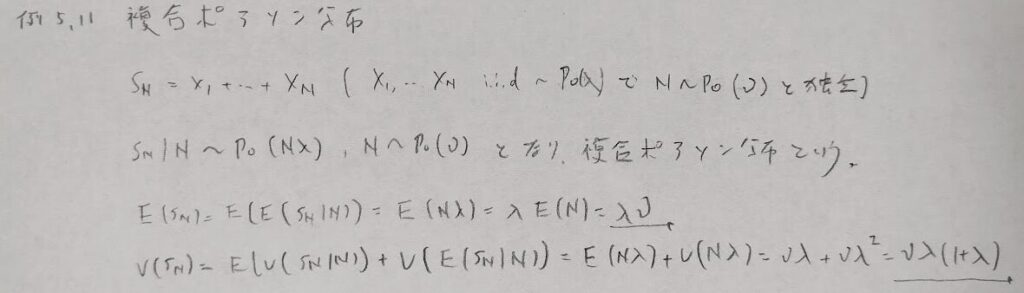 例5.11 複合ポアソン分布
S_N = X_1 + … + X_N ( X_1, … X_N i.i.d ~ Po(λ) で N ~ Po(ν) と独立)
S_N | N ~ Po(Nλ), N ~ Po(ν) となり、複合ポアソン分布という。
E(S_N) = E(E(S_N|N)) = E(Nλ) = λE(N) = λν
V(S_N) = E(V(S_N|N)) + V(E(S_N|N)) = E(Nλ) + V(Nλ) = νλ + νλ² = νλ(1+λ)